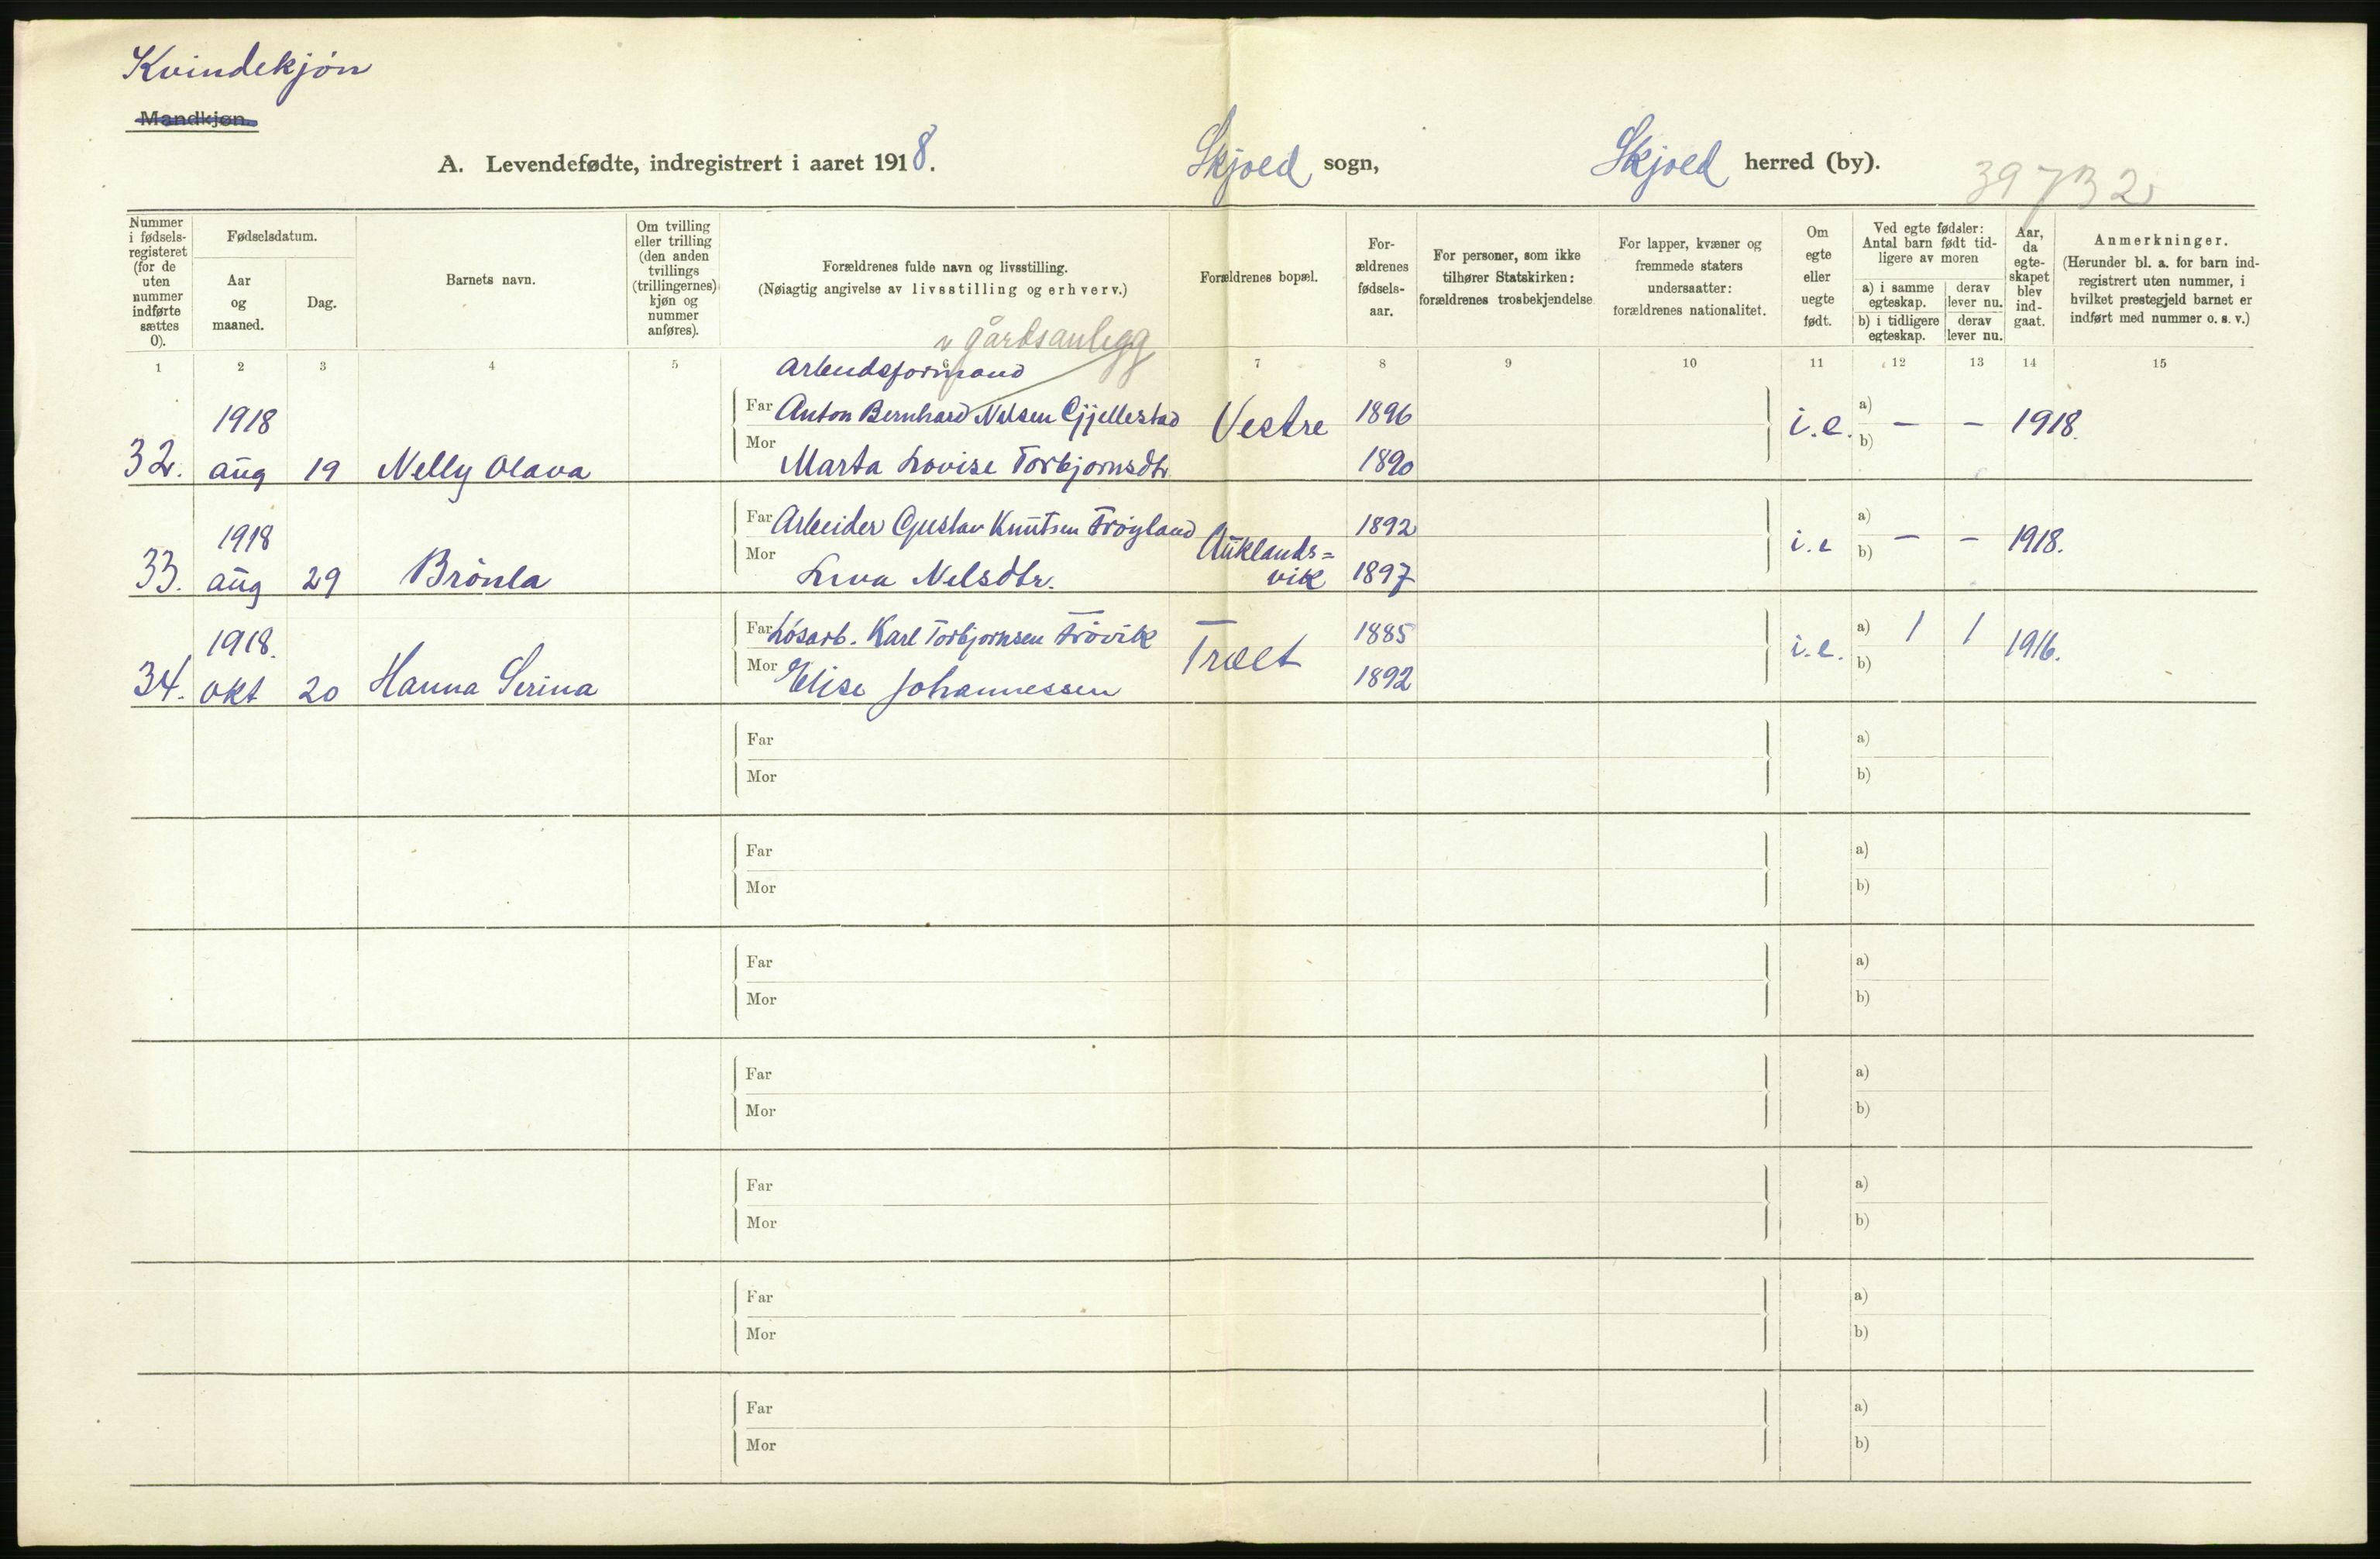 Kvindekjøn
Mandkjøn.
A. Levendefødte, indregistrert i aaret 1918. Skjold sogn, Skjold herred (by).
Nummer i fødselsregisteret (for de uten nummer indførte sættes 0).
Fødselsdatum.
Aar og maaned.
Dag.
Barnets navn.
Om tvilling eller trilling (den anden tvillings (trillingernes) kjøn og nummer anføres).
Forældrenes fulde navn og livsstilling.
(Nøiagtig angivelse av livsstilling og erhverv.)
Forældrenes bopæl.
Forældrenes fødselsaar.
For personer, som ikke tilhører Statskirken: forældrenes trosbekjendelse
For lapper, kvæner og fremmede staters undersaatter: forældrenes nationalitet.
Om egte eller uegte født.
Ved egte fødsler: Antal barn født tidligere av moren
a) i samme egteskap. derav lever nu.
b) i tidligere egteskap. derav lever nu.
Aar, da egteskapet blev indgaat.
Anmerkninger.
(Herunder bl. a. for barn indregistrert uten nummer, i hvilket prestegjeld barnet er indført med nummer o. s. v.)
1 2 3 4 5 6 7 8 9 10 11 12 13 14 15
v gårdsanlegg
Arbeidsformand
32. 1918 aug 19 Nelly Olava
Far Anton Bernhard Nelsen Gjellestad Vestre 1896 i.e. a) — — 1918.
Mor Marta Lovise Torbjørnsdtr. 1890 b)
33. 1918 aug 29
Far Arbeider Gustav Knutsen Frøyland Auklands= 1892 i.e a) — — 1918.
Mor Nelsdtr. vik 1897 b)
34. 1918. okt 20 Hanna Serina
Far Løsarb. Karl Torbjørnsen Trøvik 1885 i.e. a) 1 1 1916.
Mor Elise Johannessen 1892 b)
Far a)
Mor b)
Far a)
Mor b)
Far a)
Mor b)
Far a)
Mor b)
Far a)
Mor b)
Far a)
Mor b)
Far a)
Mor b)